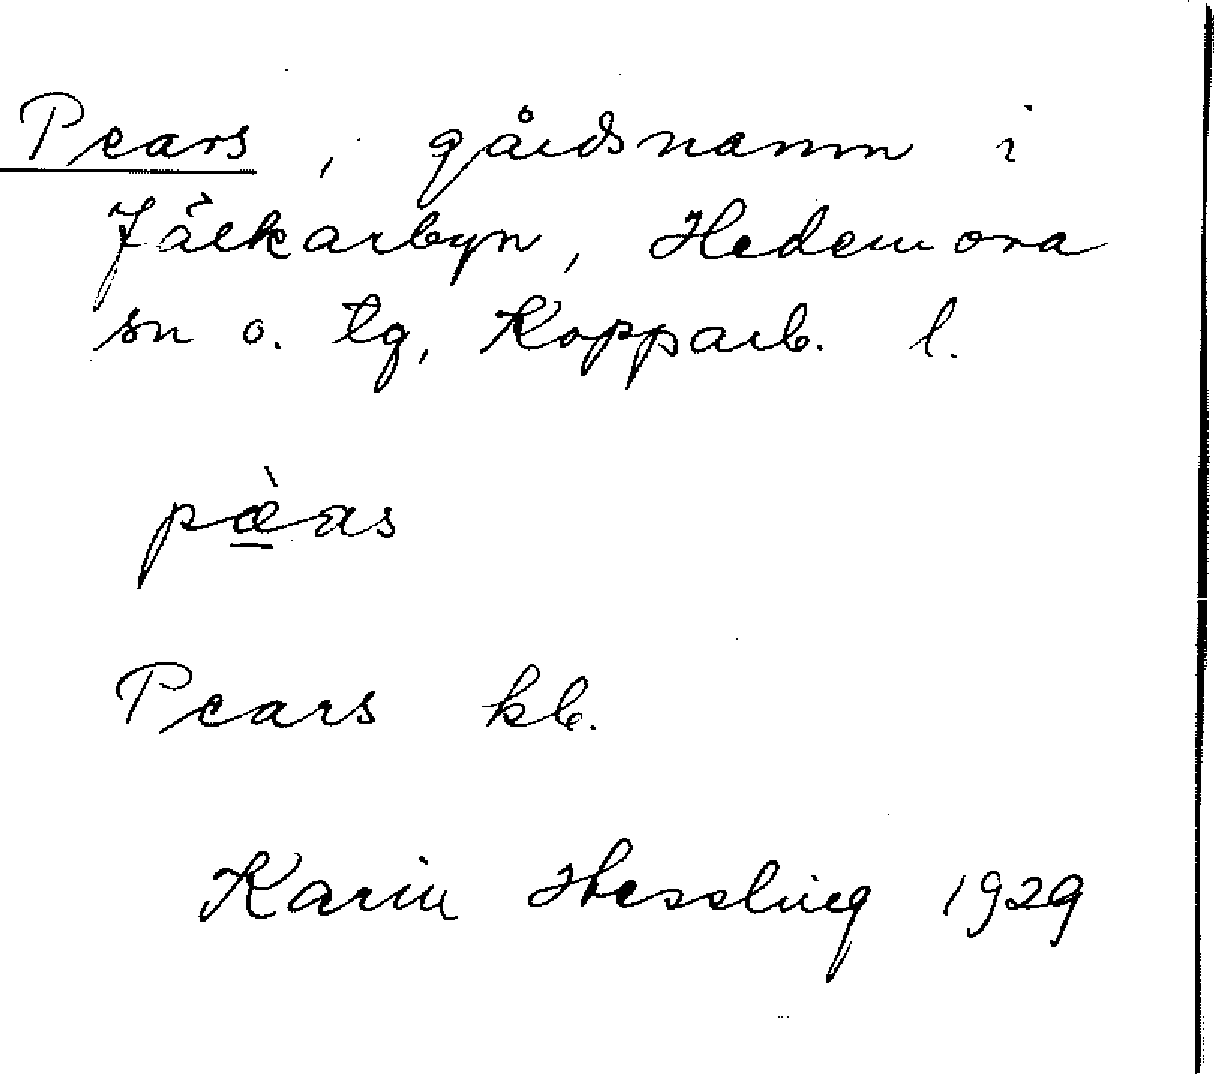 Pears, gårdsnamn i
Jälkarbyn, Hedemora
sn o. tg, Kopparb. l.
pæ̀as
Pears kb.
Karin Hessling 1929